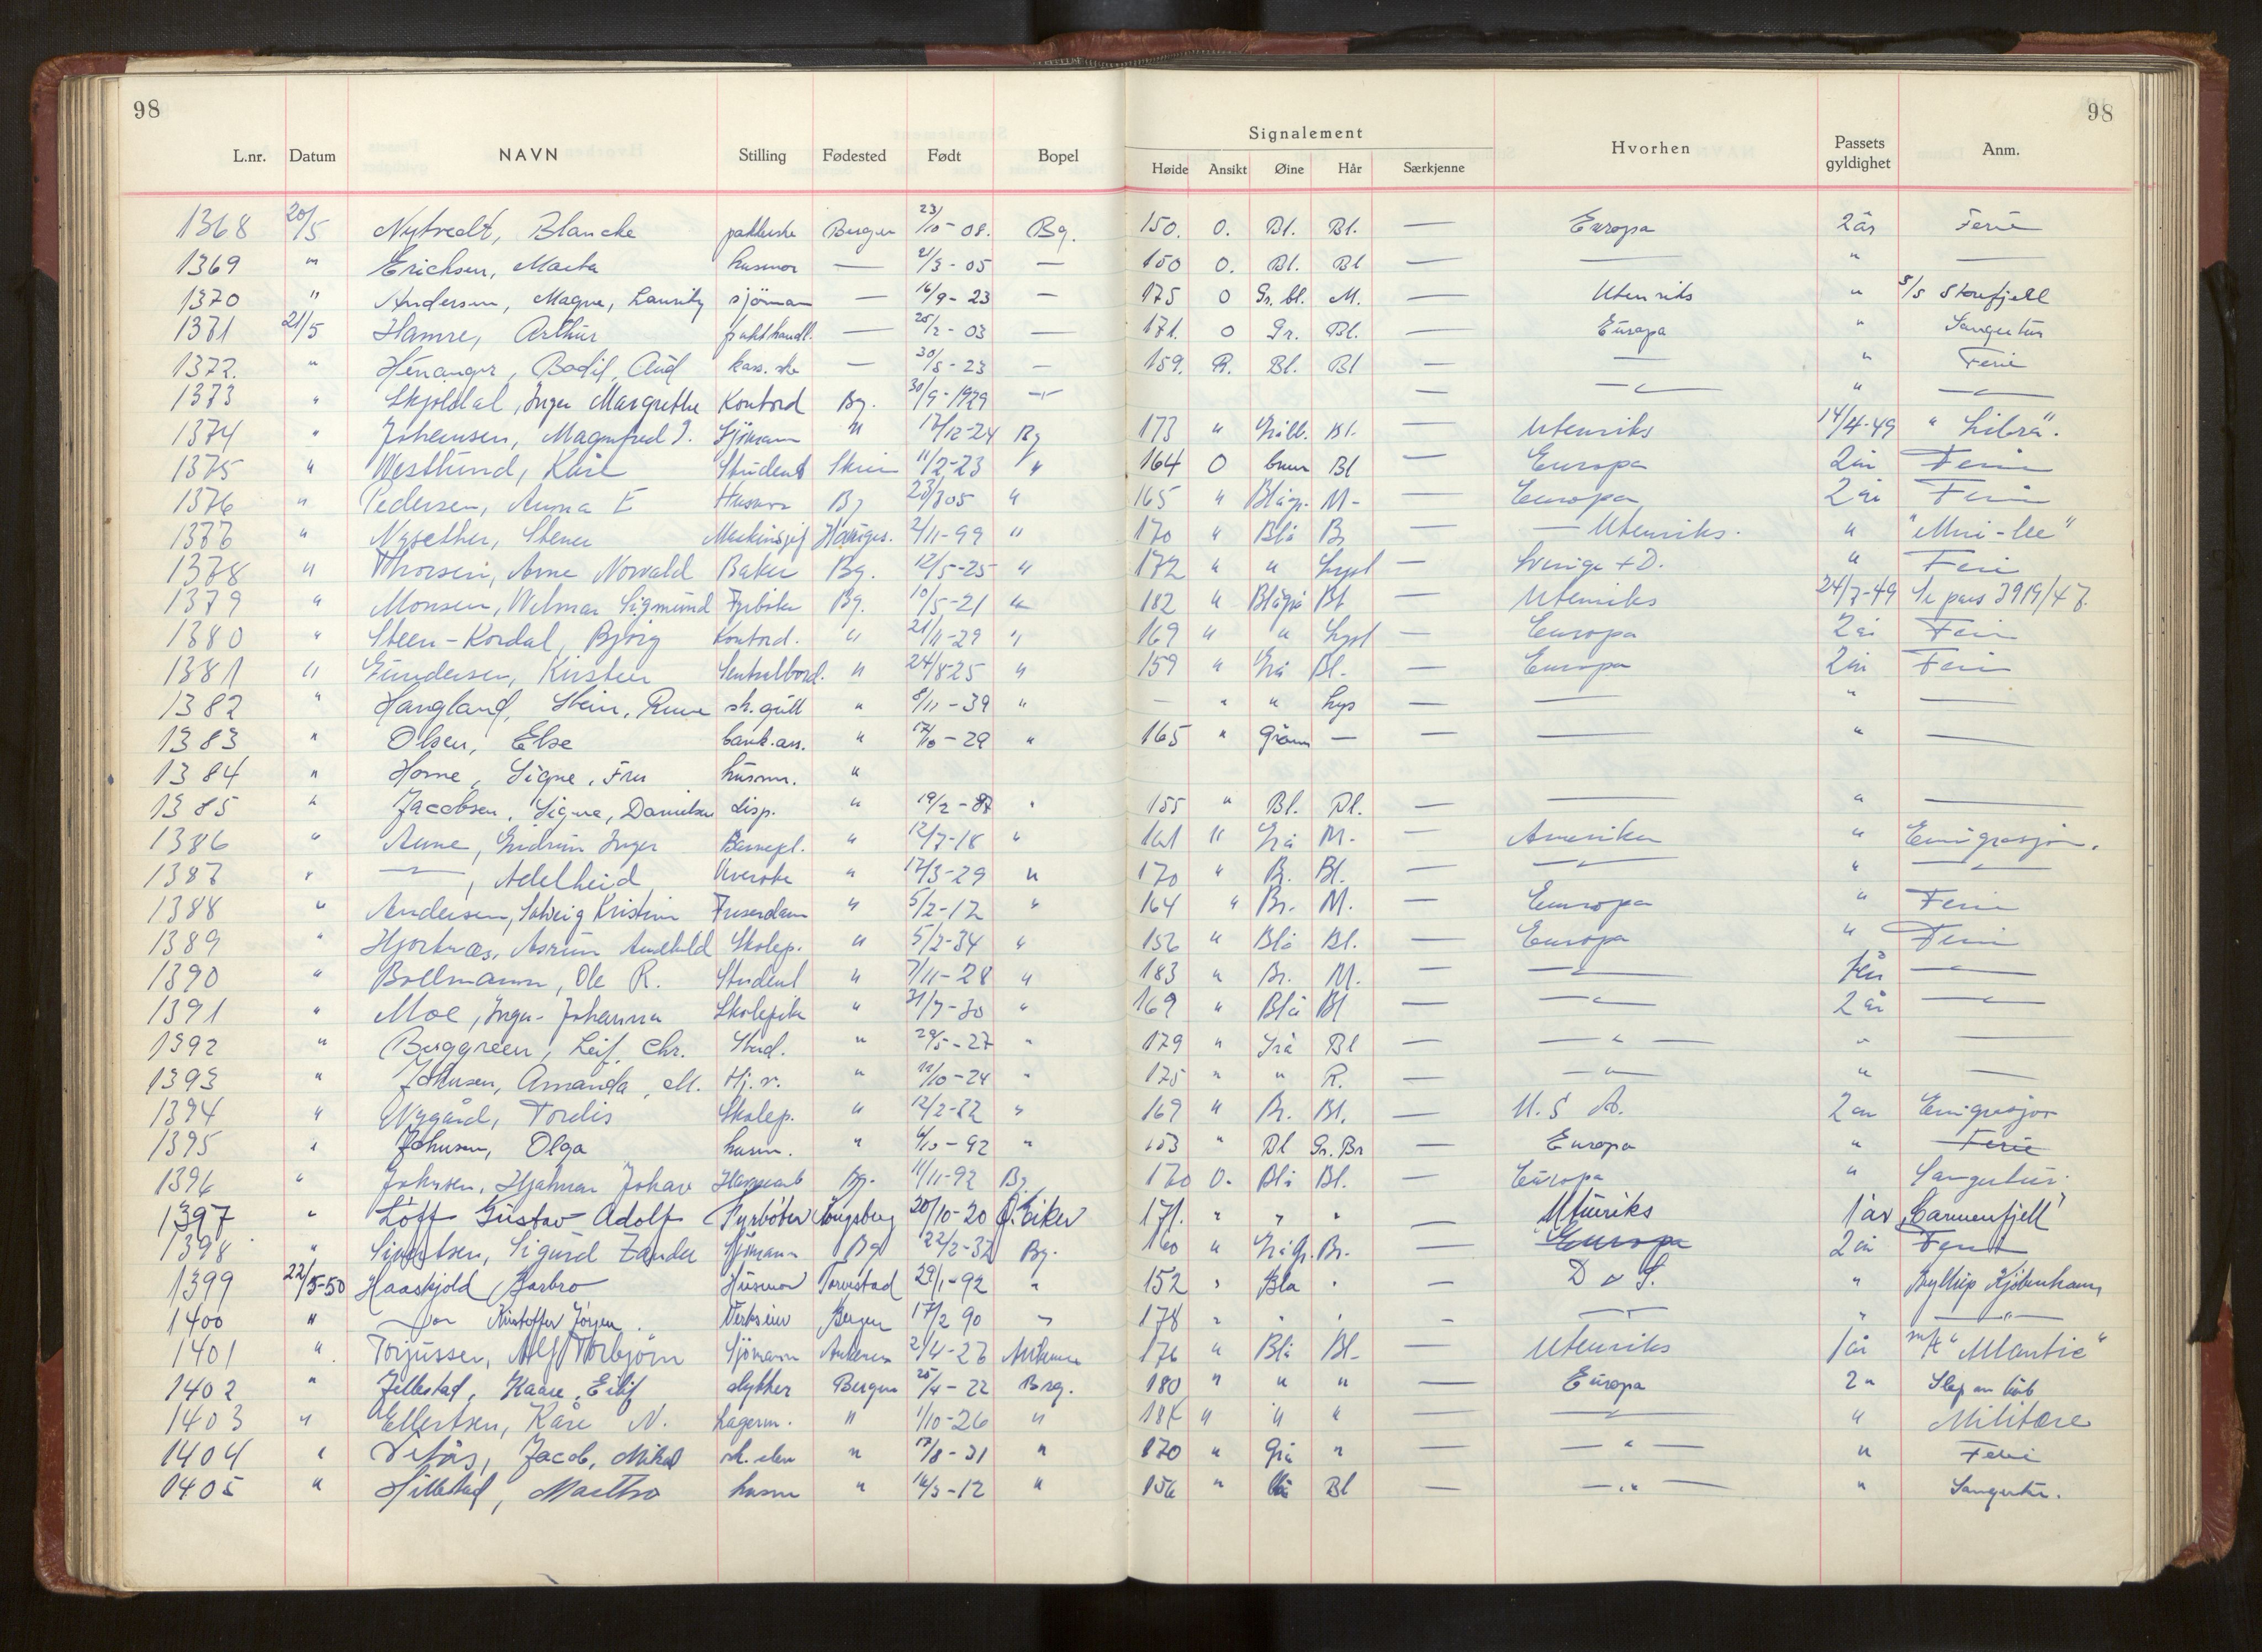 98
98
L.nr. Datum NAVN Stilling Fødested Født Bopel Signalement Hvorhen Passets gyldighet Anm.
Høide Ansikt Øine Hår Særkjenne
1368 20/5 Blanche Bergen 23/10-08. Bg. 150. O. Bl. Bl. — Europa 2 år Ferie
1369 " Erichsen, husmor — /3-05 — 150 O. Bl. Bl — — " —
1370 " Andersen, Magne, sjöman — 16/9-23 — 175 O Gr. bl. M. — Utenriks " S/S Storefjell
1371 21/5 Hamre, Arthur — 25/2-03 — 171. O Gr. Bl. — Europa " Sangertur
1372. " Bodil, Aud — 30/5-23 — 159. R. Bl. Bl — " Ferie
1373 " Skjoldal, Inger Margrethe Kontord Bg. 30/9-1929 —"— — —"— " —"—
1374 " Johansen, Magnfred J. Sjömann " 17/12-24 Bg 173 " Bl. — Utenriks 14/4-49 " Libra".
1375 " Westlund, Kåre Student 11/2-23 " 164 O brun Bl — Europa 2 år Ferie
1376 " Pedersen, Anna E Husmor Bg 23/3 05 " 165 " Blågr. M- — Europa 2 år Ferie
1377 " Nysether, Hauges. 2/11-99 " 170 " Blå B — Utenriks. "
1378 " Thorsen, Arne Norvald Baker Bg. 12/5-25 " 172 " " Lyst — Sverige + D. " Ferie
1379 " Monsen, Wilmar Sigmund Fyrböter Bg. 10/5-21 " 182 " Blågrå Bl — Utenriks 24/7-49 Se pass 3919/47.
1380 " Steen-Kordal, Björg Kontord. " 21/11-29 " 169 " " Lyst — Europa 2 år Ferie
1381 " Gundersen, Kirsten Sentralbord. " 24/8-25 " 159 " Grå Bl. — Europa 2 år Ferie
1382 " Haugland, Stein, Rune sk.gutt " 8/11-39 " — " " Lys — — " —
1383 " Olsen, Else bank.ass. " 17/10-29 " 165 " Grönn — — — " —
1384 " Horne, Signe, Fru husm. "
1385 " Jacobsen, Signe, Danielsen Disp. " 19/2-87 " 155 " Bl. Bl. — — " —
1386 " Anne, Gudrun Inger Barnepl. " 12/7-18 " 161 " Grå M. — Amerika " Emigrasjon.
1387 " —"—, Adelheid " 12/3-29 " 170 " B. Bl. — —"— " —"—
1388 " Andersen, Solveig Kristine " 5/2-12 " 164 " Br. M. — Europa " Ferie
1389 " Hjortnæs, Skolep. " 5/2-34 " 156 " Blå Bl. — Europa " Ferie
1390 " Bollmann, Ole R. Student " 7/11-28 " 183 " Br. M. — —"— —"—
1391 " Moe, Inger-Johanna Skolepike " 31/7-30 " 169 " Blå Bl — —"— 2 år —"—
1392 " Berggreen, Leif, Chr. Stud. " 29/5-27 " 179 " Grå Bl — —"— " —
1393 " Johnsen, Amanda, M. Hj.v. " /10-24 " 175 " " R. — —"— " —
1394 " Nygård, Tordis Skolep. " 12/2-32 " 169 " Br. Bl. — U.S A. 2 år Emigrasjon
1395 " Johnsen, Olga husm. " /10-92 " 153 " Bl Gr. Br — Europa " Ferie
1396 " Johnsen, Hjalmar Johan Bg. 11/11-92 Bg 170 O. Blå Bl. — Europa " Sangertur.
1397 " Löff Gustav Adolf Fyrböter Kongsberg 20/10-20 Ö. Eiker 171. " " " — Utenriks 1 år "Carmenfjell"
1398 " Sivertsen, Sigurd Zander Sjömann Bg 22/2-32 Bg. 160 " Br. — Europa 2 år Ferie
1399 22/5-50 Haaskjold Barbro Husmor Torvastad 29/1-92 " 152 " Blå " — D & S. " Kjöbenhavn
1400 " Kristoffer Jörgen. Bergen 17/2 90 " 178 " " " — —"— " —"—
1401 " Torjussen, Alf Torbjörn Sjömann 2/4-27 176 " Blå Bl. — Utenriks 1 år m/t "Atlantic"
1402 " Kaare, Eilif Bergen 25/4-22 Brg. 180 " " " — Europa 2 "
1403 " Ellertsen, Kåre N. Lagerm. " 1/10-26 " " " " — —"— " Militære
1404 " Jacob, Mikal " 17/8-31 " 170 " Grå " — —"— " Ferie
1405 " Hillestad, Martha husm " 16/3-12 " 156 " Bl — —"— " Sangertur.